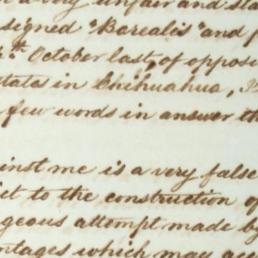 a very unfair and sta
signed "Borealis" and p
th October last of opposi
state in Chihuahua,
few words in answer th
inst me is a very false
ct to the construction of
geous attempt made by
ntages which may acc